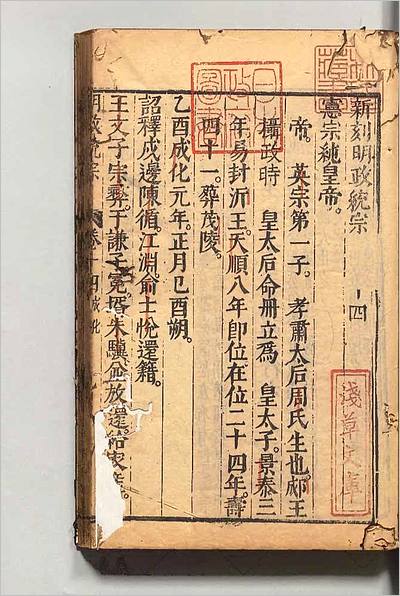 新刻明政統宗 十四
憲宗純皇帝
帝。英宗第一子。孝肅太后周氏生也。郕王
攝政時 皇太后命冊立爲 皇太子。景泰三
年易封沂王。天順八年卽位在位二十四年。壽
四十一。葬茂陵。
乙酉成化元年。正月己酉朔。
詔釋戍邊陳循。江淵。俞士悅還籍。
王文子宗彝。于謙子冕。壻朱驥並放還。給
明政統宗 卷十四 成化
淺草文庫